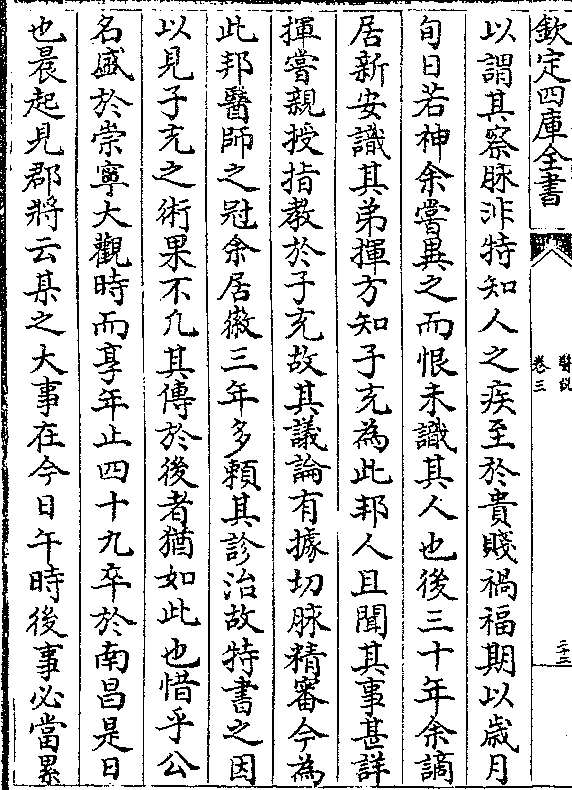 欽定四庫全書
醫説
卷三
二十三
以謂其察脉非特知人之疾至於貴賤禍福期以歳月
旬日若神余嘗異之而恨未識其人也後三十年余謫
居新安識其弟揮方知子充為此邦人且聞其事甚詳
揮嘗親授指教於子充故其議論有據切脉精審今為
此邦醫師之冠余居徽三年多頼其診治故特書之因
以見子充之術果不凢其傳於後者猶如此也惜乎公
名盛於崇寧大觀時而享年止四十九卒於南昌是日
也晨起見郡將云某之大事在今日午時後事必當累